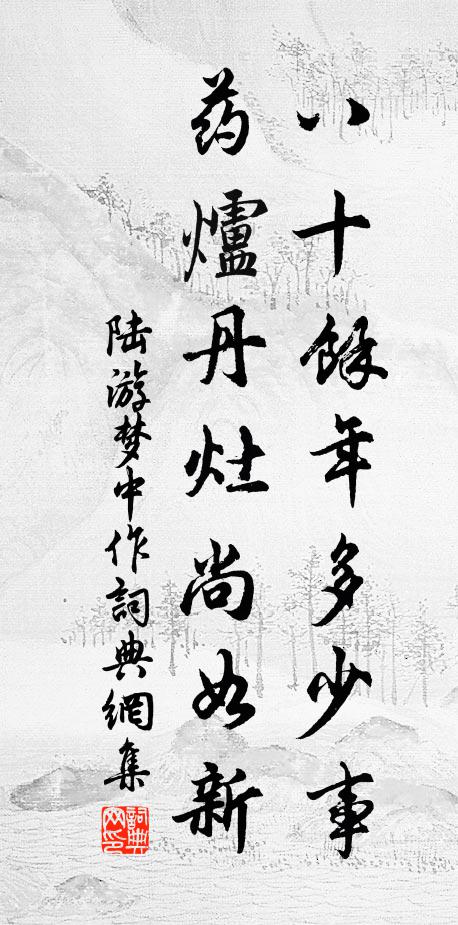 八十餘年多少事
药爐丹灶尚如新
陆游梦中作詞典網集
詞典网印